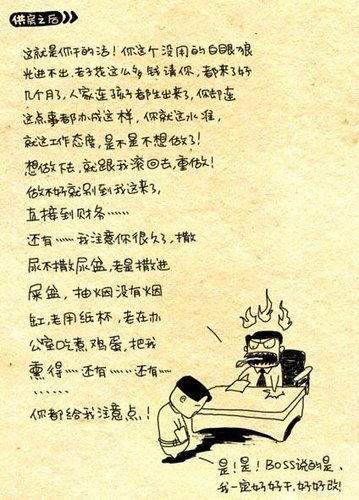 供房之后
这就是你干的活！你这个没用的白眼狼
光进不出，老子花这么多钱请你，都来了好
几个月了，人家连孩子都生出来了，你却连
这点事都办成这样，你就这水准，
就这工作态度，是不是不想做了！
想做下去，就跟我滚回去，重做！
做不好就别到我这来了，
直接到财务……
还有……我注意你很久了，撒
尿不撒尿盆，老是撒进
屎盆，抽烟没有烟
缸，老用纸杯，老在办
公室吃煮鸡蛋，把我
熏得……还有……还有…
……
你都给我注意点！
是！是！BOSS说的是、
我一定好好干，好好改！